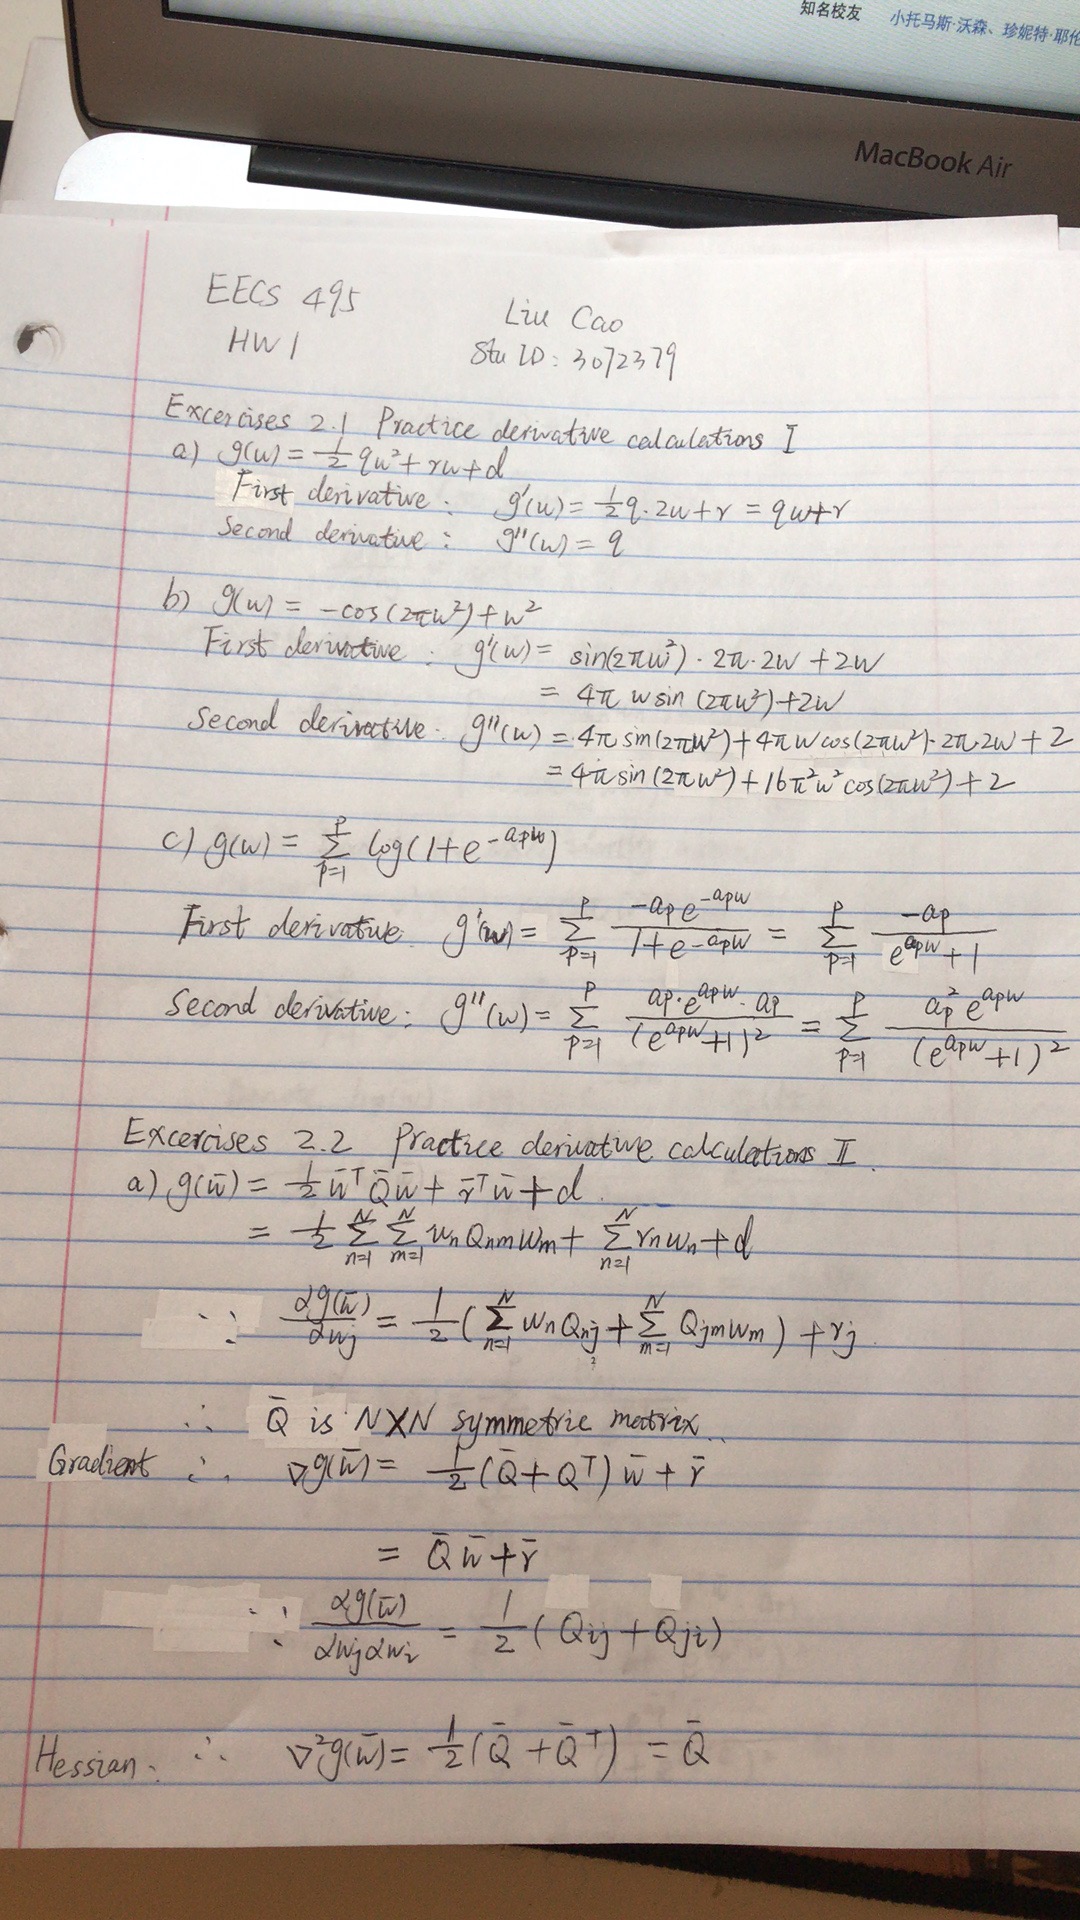 知名校友 小托马斯·沃森、珍妮特·耶伦
MacBook Air
EECS 495
Liu Cao
HW 1
Stu ID: 3072379
Excercises 2.1 Practice derivative calculations I
a) g(w) = ½ qw² + rw + d
First derivative: g'(w) = ½ q · 2w + r = qw + r
Second derivative: g''(w) = q
b) g(w) = -cos(2πw²) + w²
First derivative: g'(w) = sin(2πw²) · 2π · 2w + 2w
= 4π w sin (2πw²) + 2w
Second derivative: g''(w) = 4π sin(2πw²) + 4π w cos(2πw²) · 2π · 2w + 2
= 4π sin (2πw²) + 16π²w² cos(2πw²) + 2
c) g(w) = Σ_{p=1}^{P} log(1+e^{-a_p w})
First derivative: g'(w) = Σ_{p=1}^{P} \frac{-a_p e^{-a_p w}}{1+e^{-a_p w}} = Σ_{p=1}^{P} \frac{-a_p}{e^{a_p w}+1}
Second derivative: g''(w) = Σ_{p=1}^{P} \frac{a_p · e^{a_p w} · a_p}{(e^{a_p w}+1)^2} = Σ_{p=1}^{P} \frac{a_p^2 e^{a_p w}}{(e^{a_p w}+1)^2}
Excercises 2.2 Practice derivative calculations II.
a) g(w̄) = ½ w̄ᵀ Q̄ w̄ + r̄ᵀ w̄ + d
= ½ Σ_{n=1}^{N} Σ_{m=1}^{N} w_n Q_{nm} w_m + Σ_{n=1}^{N} r_n w_n + d
∵ \frac{∂g(w̄)}{∂w_j} = ½ ( Σ_{n=1}^{N} w_n Q_{nj} + Σ_{m=1}^{N} Q_{jm} w_m ) + r_j
∵ Q̄ is N×N symmetric matrix.
Gradient ∴ ∇g(w̄) = ½ (Q̄ + Qᵀ) w̄ + r̄
= Q̄ w̄ + r̄
∵ \frac{∂g(w̄)}{∂w_j ∂w_i} = ½ ( Q_{ij} + Q_{ji} )
Hessian. ∴ ∇²g(w̄) = ½ (Q̄ + Q̄ᵀ) = Q̄